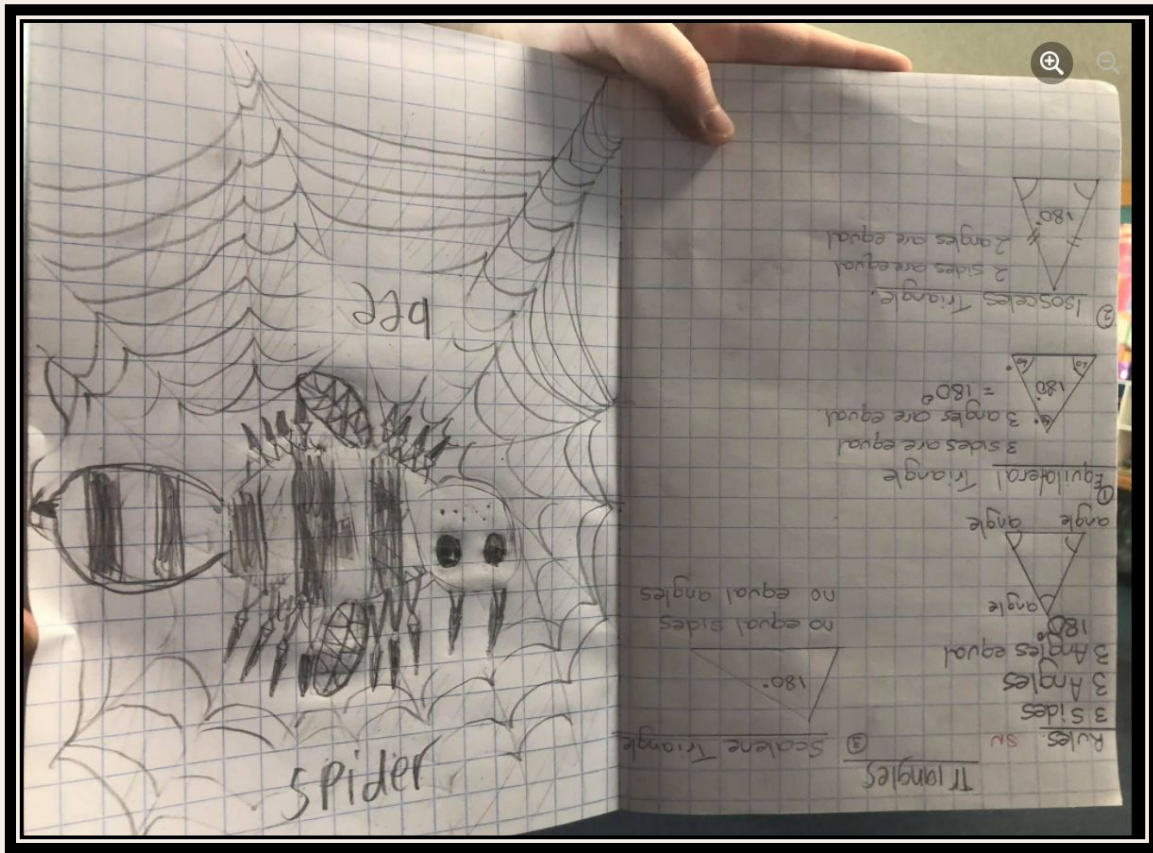 bee
spider
Triangles
Rules
3 Sides
3 Angles
3 Angles equal
180°
angle
angle angle
① Equilateral Triangle
3 sides are equal
3 angles are equal
= 180°
60°
180°
60° 60°
② Isosceles Triangle.
2 sides are equal
2 angles are equal
180°
③ Scalene Triangle
180°
no equal sides
no equal angles